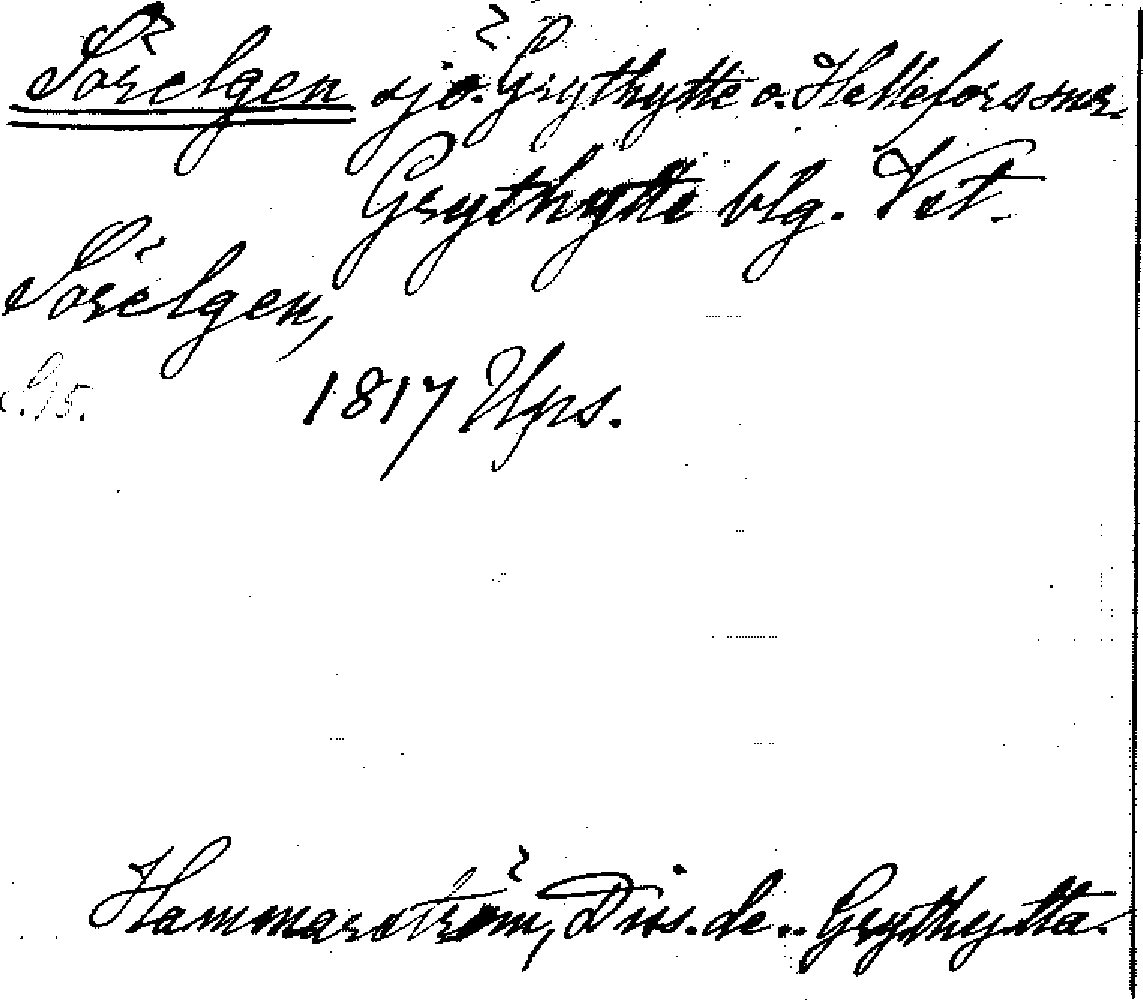 Sörelgen sjö. Grythytte o. Hellefors snr.
Grythytte blg. Vst.
Sörelgen,
S. 15. 1817 Ups.
Hammarström, Diss. de .. Grythytta.